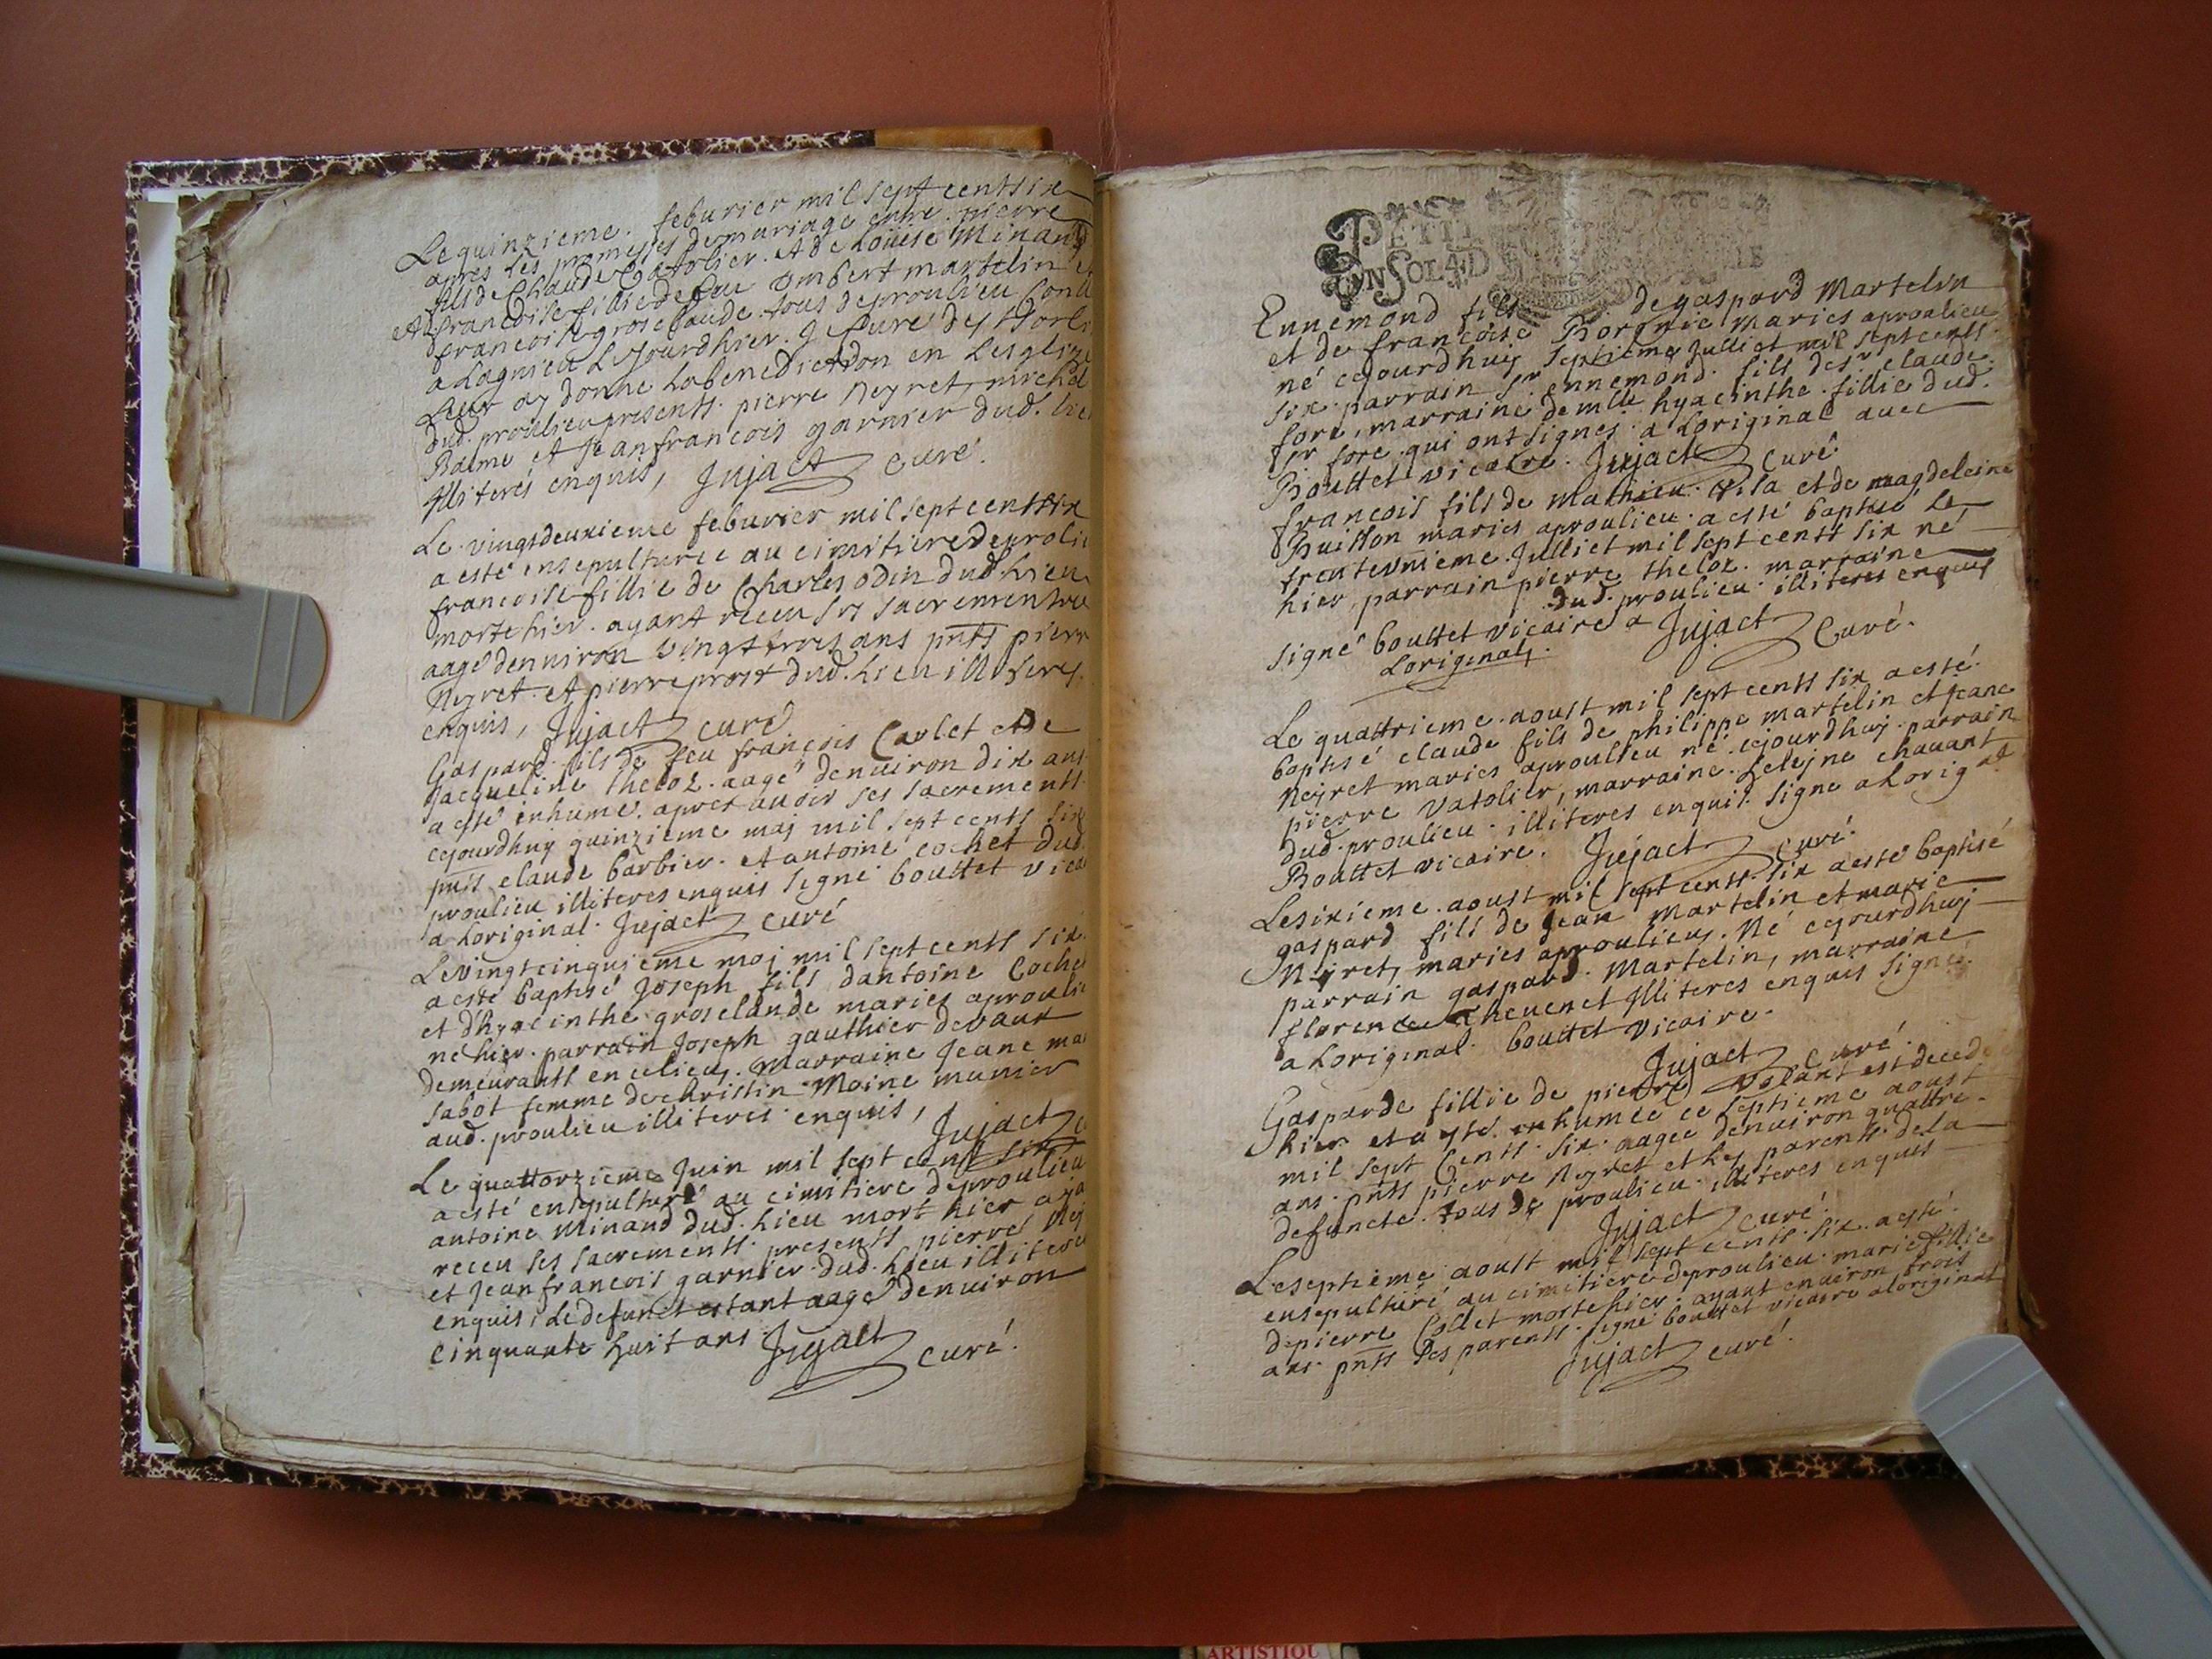 Le quinzieme. feburier mil sept cents six
apres les promesses de mariage entre pierre
fils de Claude Vatolier. et de Loüise Minand
et francoise fillie de feu Umbert martelin et
francoise groseclaude. tous de proulieu
a Lagnieu Le jourdhier. Je Curé des
Leur ay donné la benediction en Lesglize
dud. proulieu presents. pierre Neyret, michel
Balme et Jean francois garnier dud. lie
illiterés enquis, Jujact curé.
Le vingtdeuxieme feburier mil sept cents six
a esté ensepulturée au cimitiere de prolie
francoise fillie de Charles odin dud. Lieu
morte hier. ayant receu ses sacrements
aagé denuiron vingt trois ans pnts pierr
Neyret. et pierre prost dud. Lieu illiteres
enquis, Jujact curé
Gaspard fils de feu françois Carlet et De
Jacqueline theloz. aagé denuiron dix ans
a esté inhumé. apres auoir ses sacrements.
cejourdhuy quinzieme maj mil sept cents six
pnts claude barbier. et antoine cochet dud.
proulieu illiteres enquis signé bouttet vica
a Loriginal. Jujact curé
Le vingtcinquieme moj mil sept cents six.
a esté baptisé Joseph fils dantoine Coche
et dhyacinthe groselaude mariés aproulie
né hier. parrain Joseph gauthier de vaux
demeurants en celieu. Marraine Jeane ma
sabot femme de christin Moine munier
aud. proulieu illiteres enquis, Jujact c
Le quattorzieme Juin mil sept cents six
a esté ensepulturé au cimitiere deproulieu
antoine Minand dud. Lieu mort hier aya
receu ses sacrements. presents pierre Ney
et Jean francois garnier. dud. Lieu illitere
enquis, Le defunct estant aagé denuiron
cinquante huit ans Jujact curé.
PETIT
UN SOL 4 D
Ennemond fils de gaspard Martelin
et de francoise Borgnie Mariés aproulieu
né cejourdhuy septieme Julliet mil sept cents
six. parrain Sr ennemond. fils de sr claude
fore, marraine demlle hyacinthe. fillie dud.
Sr fore. qui ont signés. a Loriginal auec
Bouttet vicaire. Jujact curé.
francois fils de Mathieu. Vila et de magdeleine
Buisson mariés aproulieu. a esté baptisé le
trenteunieme. Julliet mil sept cents six né
hier, parrain pierre theloz. marraine
dud. proulieu illiteres enquis
signé bouttet vicaire a Jujact Curé.
Loriginal.
Le quattrieme. aoust mil sept cents six a esté.
baptisé claude fils de philippe martelin et Jeane
Neyret mariés aproulieu né. cejourdhuy. parrain
pierre Vatolier, marraine. heleine chauant
dud. proulieu. illiteres enquis. signe a Lorig al
Bouttet vicaire. Jujact curé.
Lesixieme. aoust mil sept cents. six aesté baptisé
gaspard fils de Jean Martelin et marie
Neyret, mariés aproulieu. Né cejourdhuy
parrain gaspard. Martelin, marraine
florence Theuenet Illiteres enquis signé
a Loriginal. bouttet vicaire.
Jujact curé.
Gasparde fillie de pierre Volant est decedé
hier et a esté. inhumée ce septieme aoust
mil sept Cents. six. aagée denuiron quattre.
ans. pnts pierre Neyret et les parents. de la
defuncte. tous de proulieu. illiteres enquis
Jujact curé.
Leseptieme aoust mil sept cents. six. a esté.
ensepulturé au cimitiere deproulieu. marie fillie
depierre Collet morte hier. ayant enuiron trois
ans. pnts les parents. signé bouttet vicaire aloriginal
Jujact curé.
ARTISTIQU